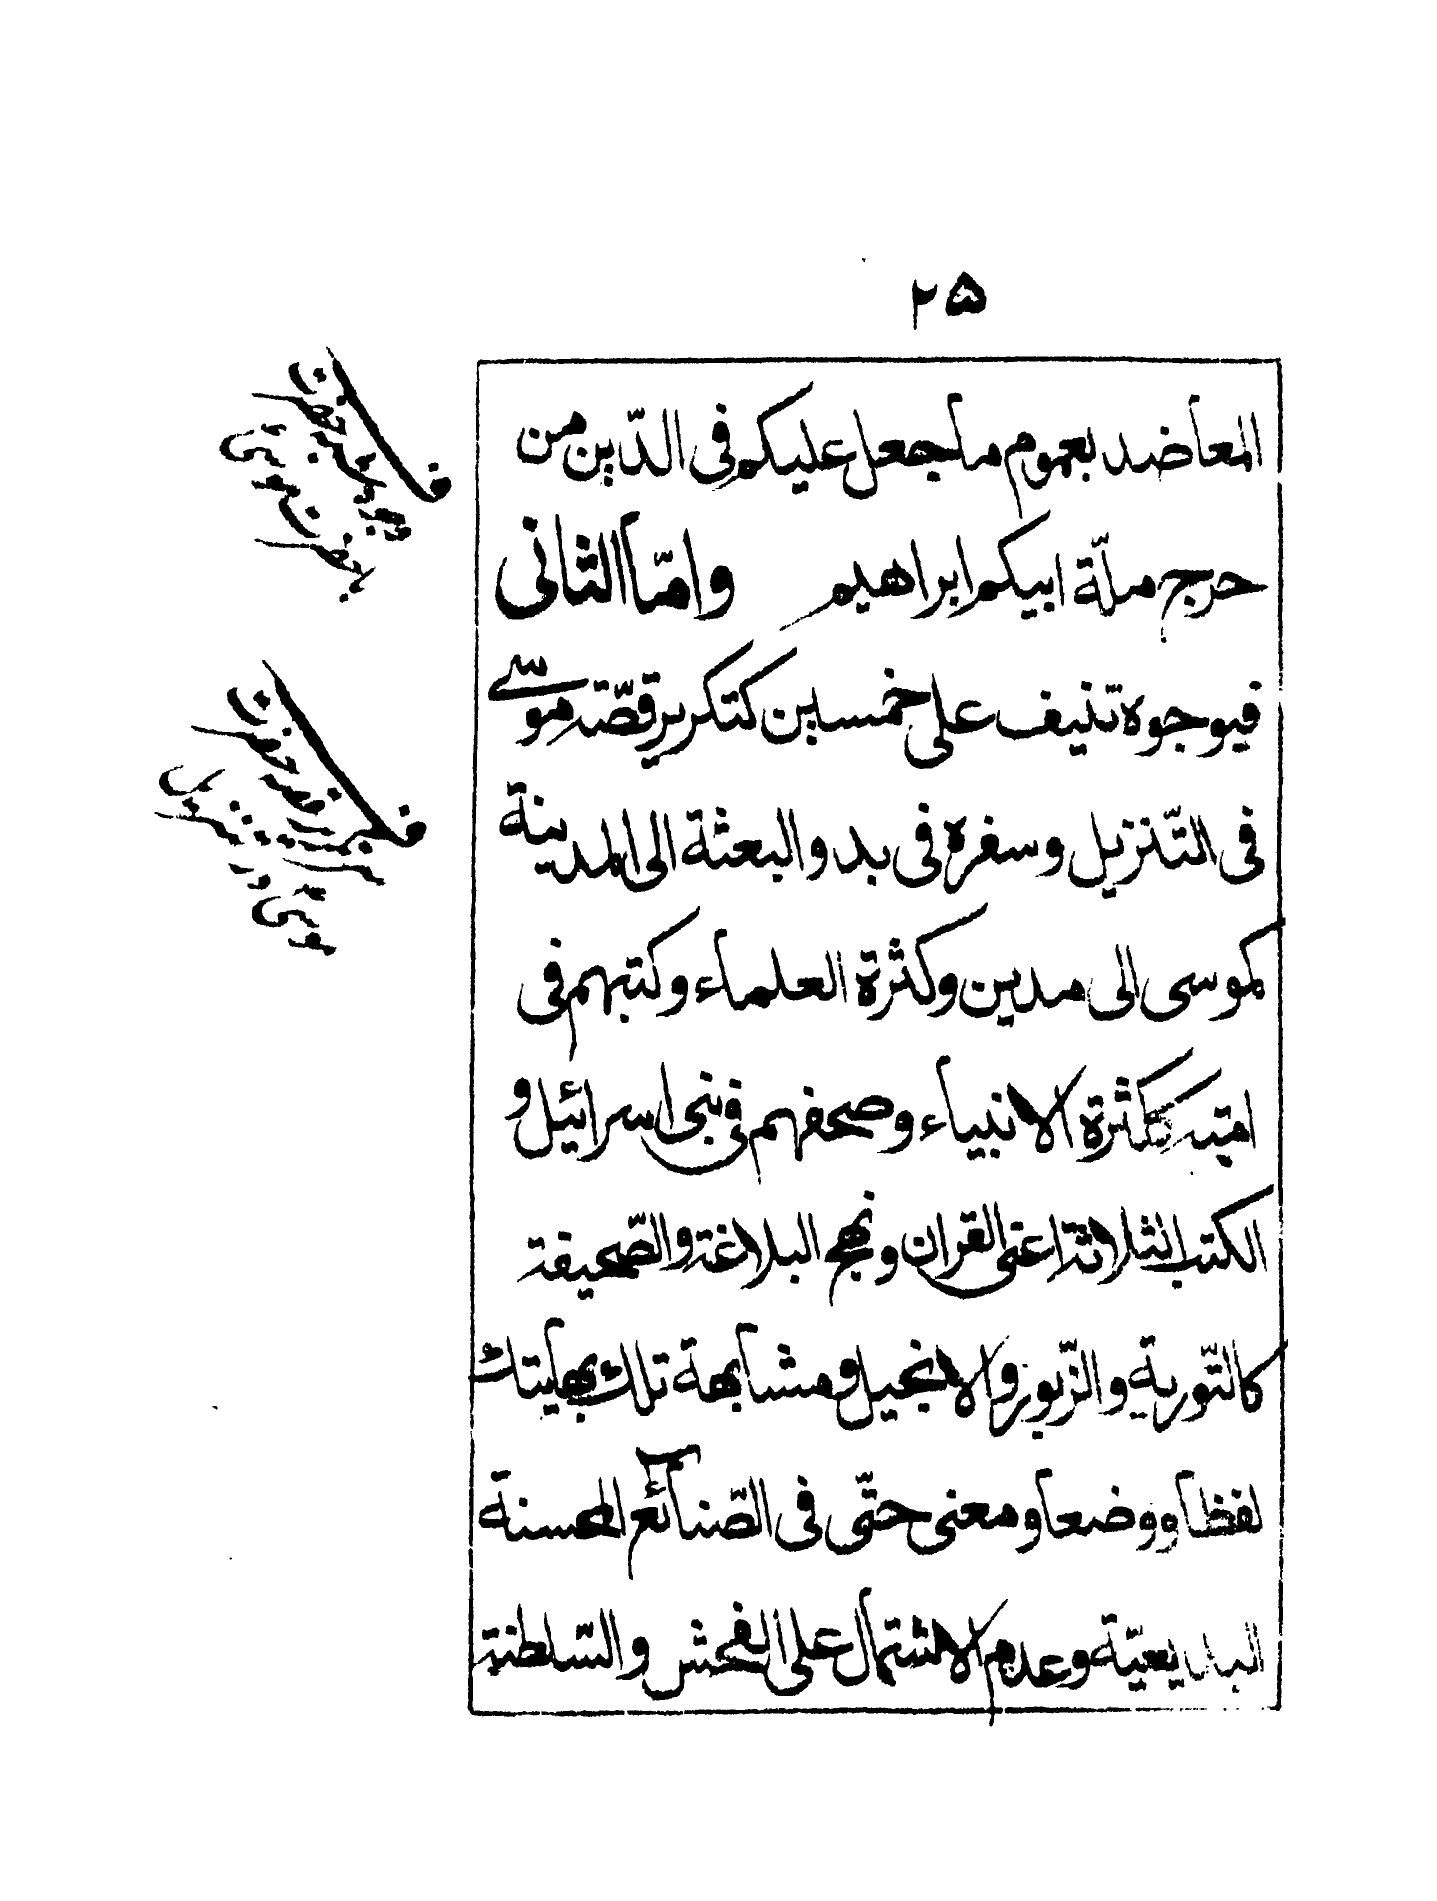 ٢۵
المعاضد بعموم ما جعل عليكم فى الدّين من
حرج ملّة ابيكم ابراهيم وامّا الثانى
فبوجوه تنيف على خمسين كتكرير قصّة موسى
فى التّنزيل وسفره فى بدو البعثة الى المدينة
كموسى الى مدين وكثرة العلماء وكتبهم فى
امّته ككثرة الانبياء وصحفهم فى بنى اسرائيل و
الكتب الثلاثة اعنى القران ونهج البلاغة والصّحيفة
كالتّورية والزّبور والانجيل ومشابهة تلك بهاتيك
لفظا ووضعا ومعنى حتّى فى الصّنائع المحسنة
البديعيّة وعدم الاشتمال على الفحش والسّلطنة